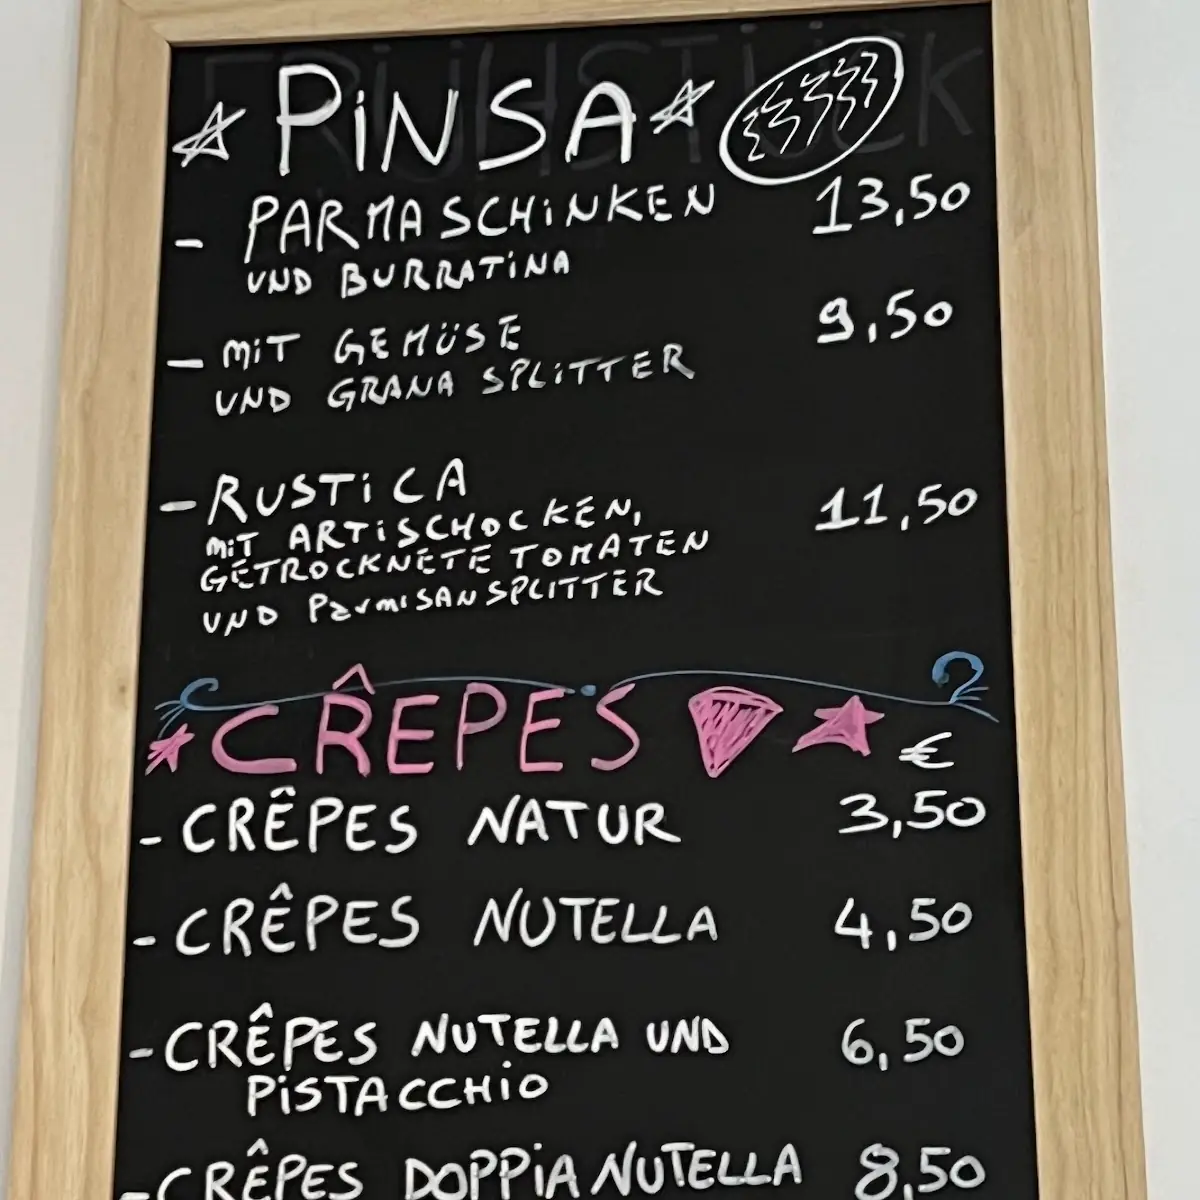 FRÜHSTÜCK
PiNSA
- PARMASCHiNKEN 13,50
UND BURRATiNA
- MiT GEMÜSE 9,50
UND GRANA SPLiTTER
- RUSTiCA 11,50
MiT ARTiSCHOCKEN,
GETROCKNETE TOMATEN
UND ParmiSANSPLITTER
CRÊPES
€
- CRÊPES NATUR 3,50
- CRÊPES NUTELLA 4,50
- CRÊPES NUTELLA UND 6,50
PiSTACCHiO
- CRÊPES DOPPiA NUTELLA 8,50